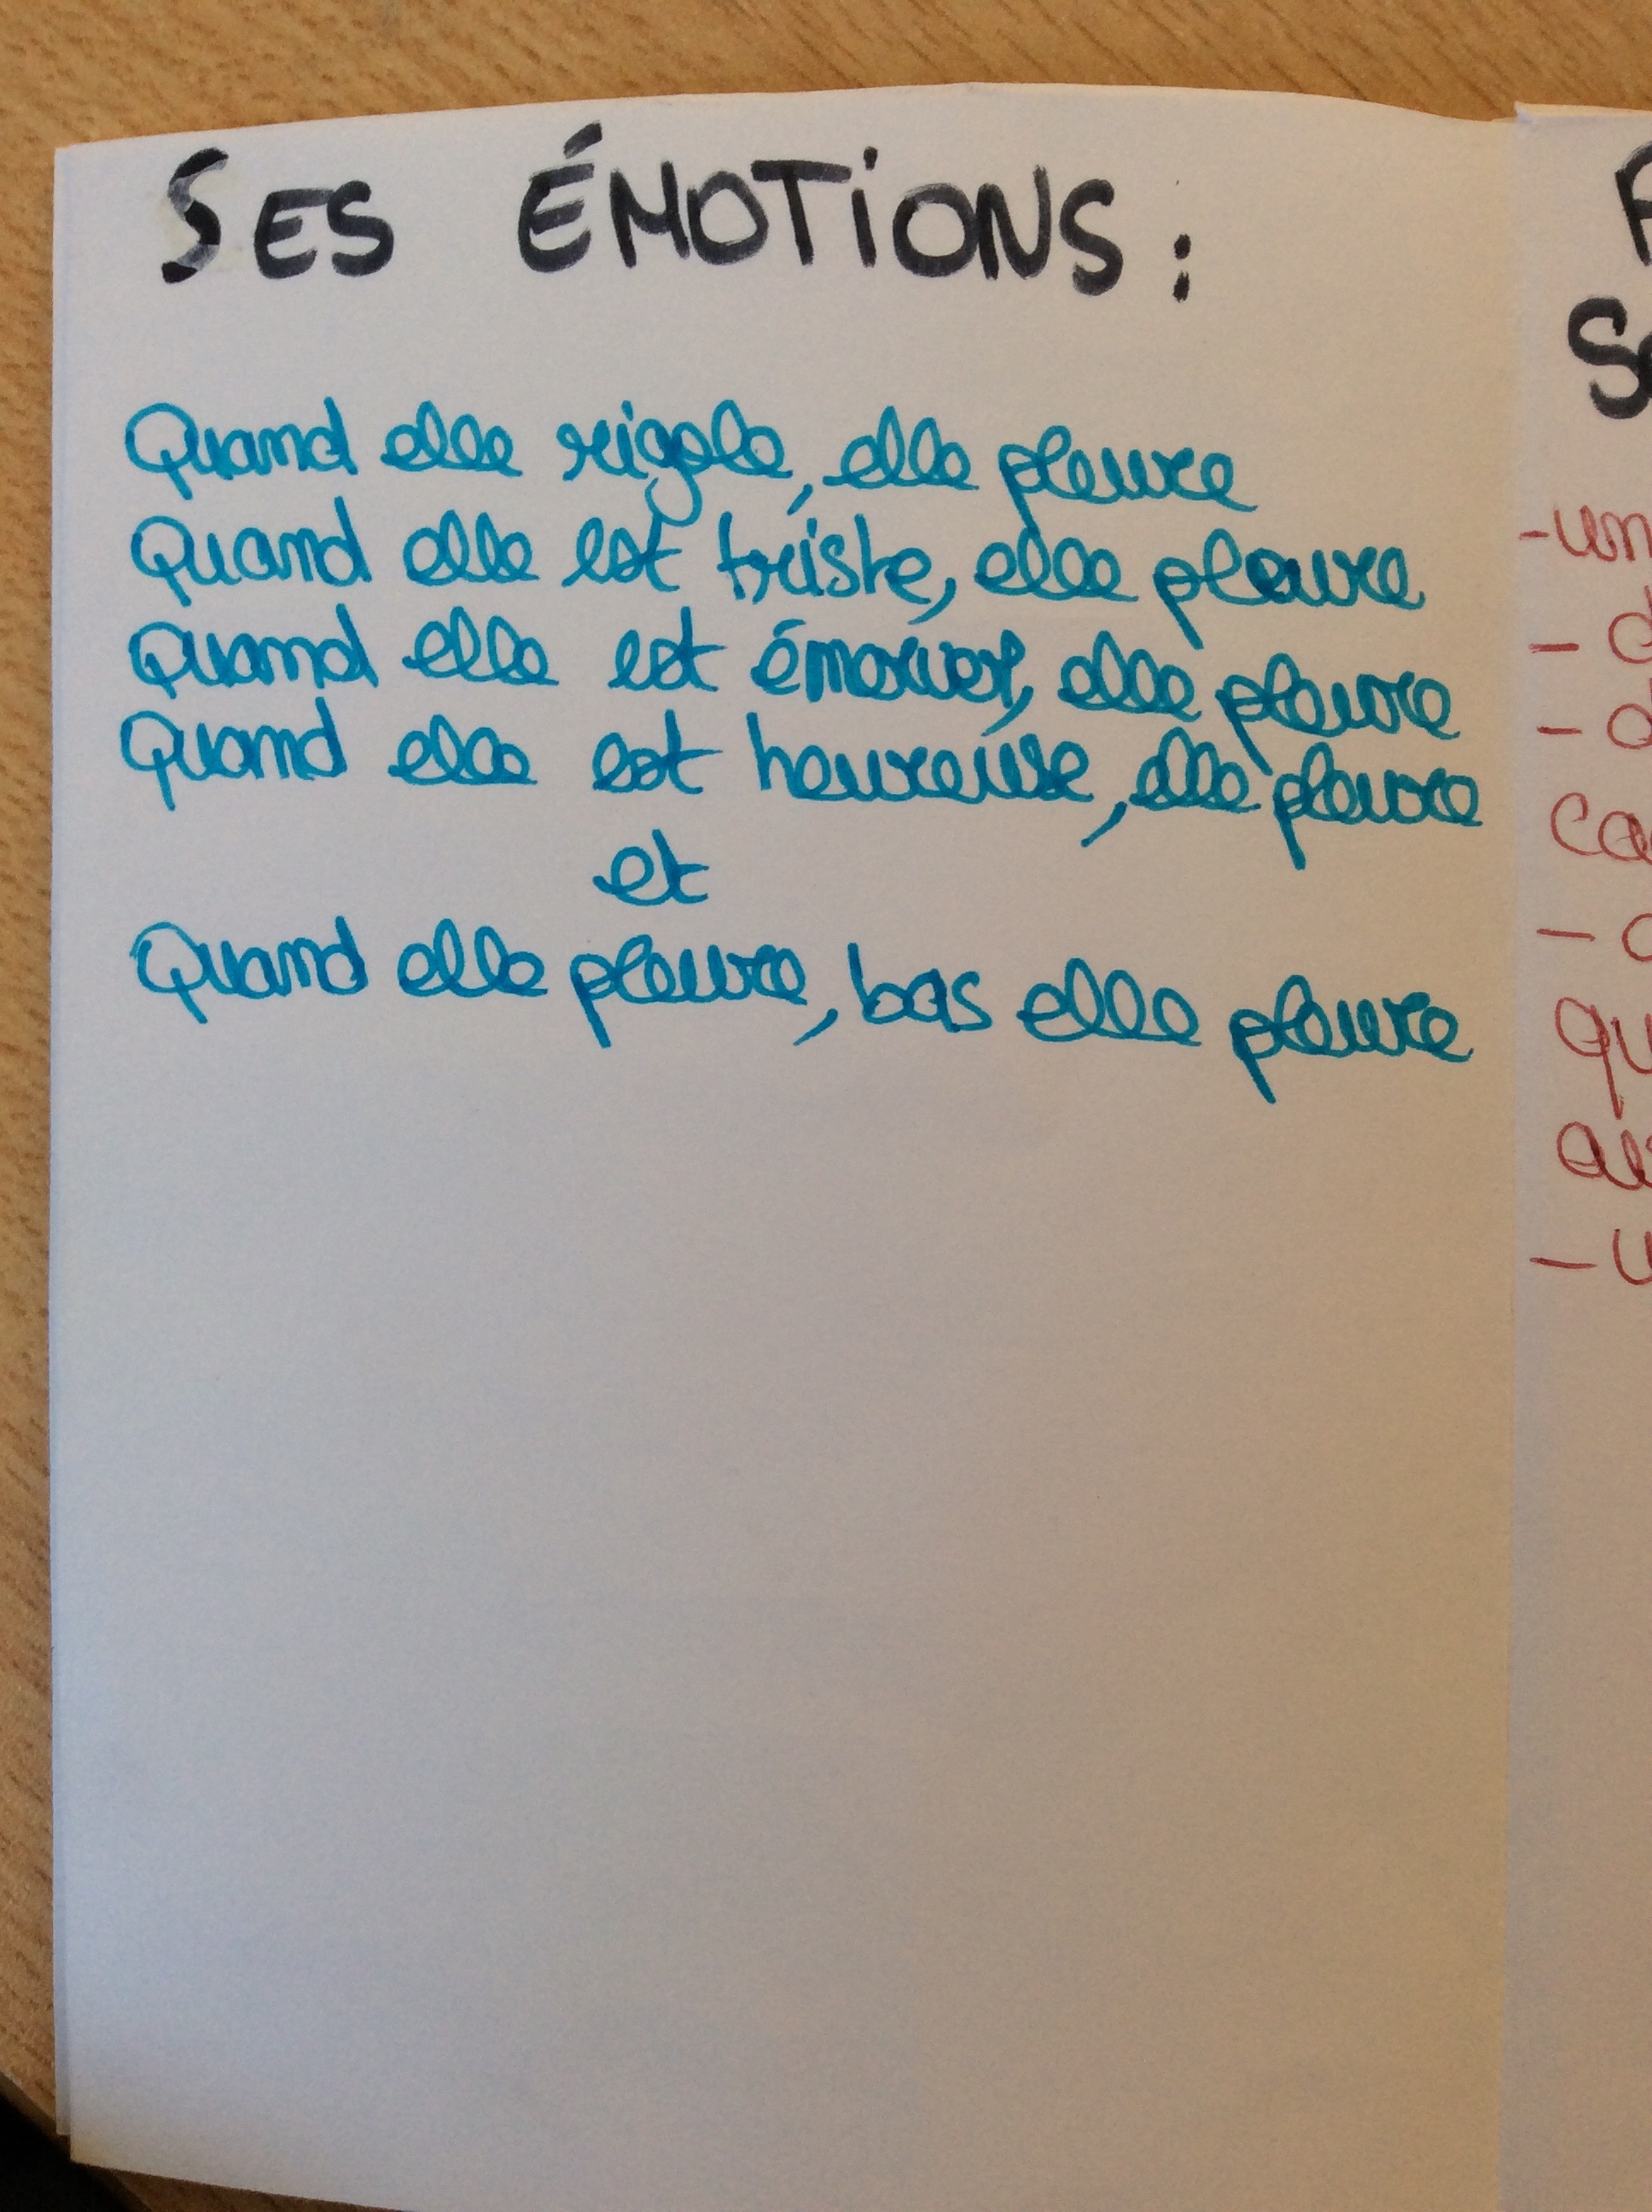 SES ÉMOTIONS :
Quand elle rigole, elle pleure
Quand elle est triste, elle pleure
Quand elle est, elle pleure
Quand elle est heureuse, elle pleure
et
Quand elle pleure, bas elle pleure
-un
-
-
ca
-
qu
-